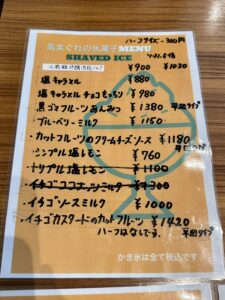 ハーフサイズ -300円
気まぐれの氷菓子MENU
SHAVED ICE
¥900 ¥1030
塩キャラメル ¥880
塩キャラメル チョコもっちり ¥980
黒ゴマフルーツあんみつ ¥1380 平皿タイプ
ブルーベリーミルク ¥1150
カットフルーツのクリームチーズソース ¥1180
シンプル塩レモン ¥760
塩レモン ¥1100
イチゴココナッツミルク ¥1300
イチゴソースミルク ¥1000
イチゴカスタードのカットフルーツ ¥1420
ハーフはなしです。 平皿タイプ
かき氷は全て税込です